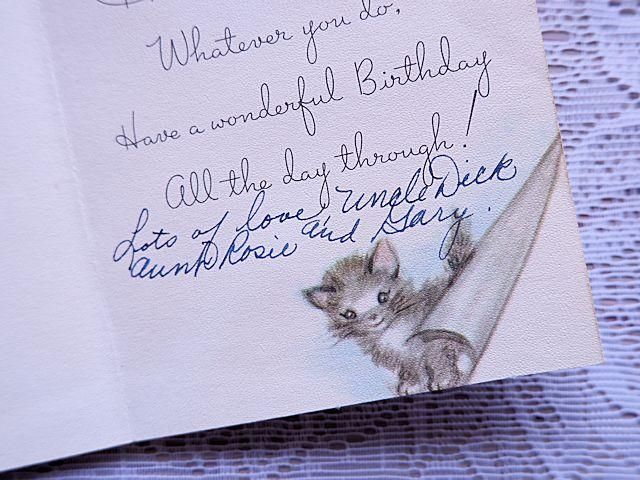 Whatever you do,
Have a wonderful Birthday
All the day through!
Lots of love, Uncle Dick
Aunt Rosie and Gary.